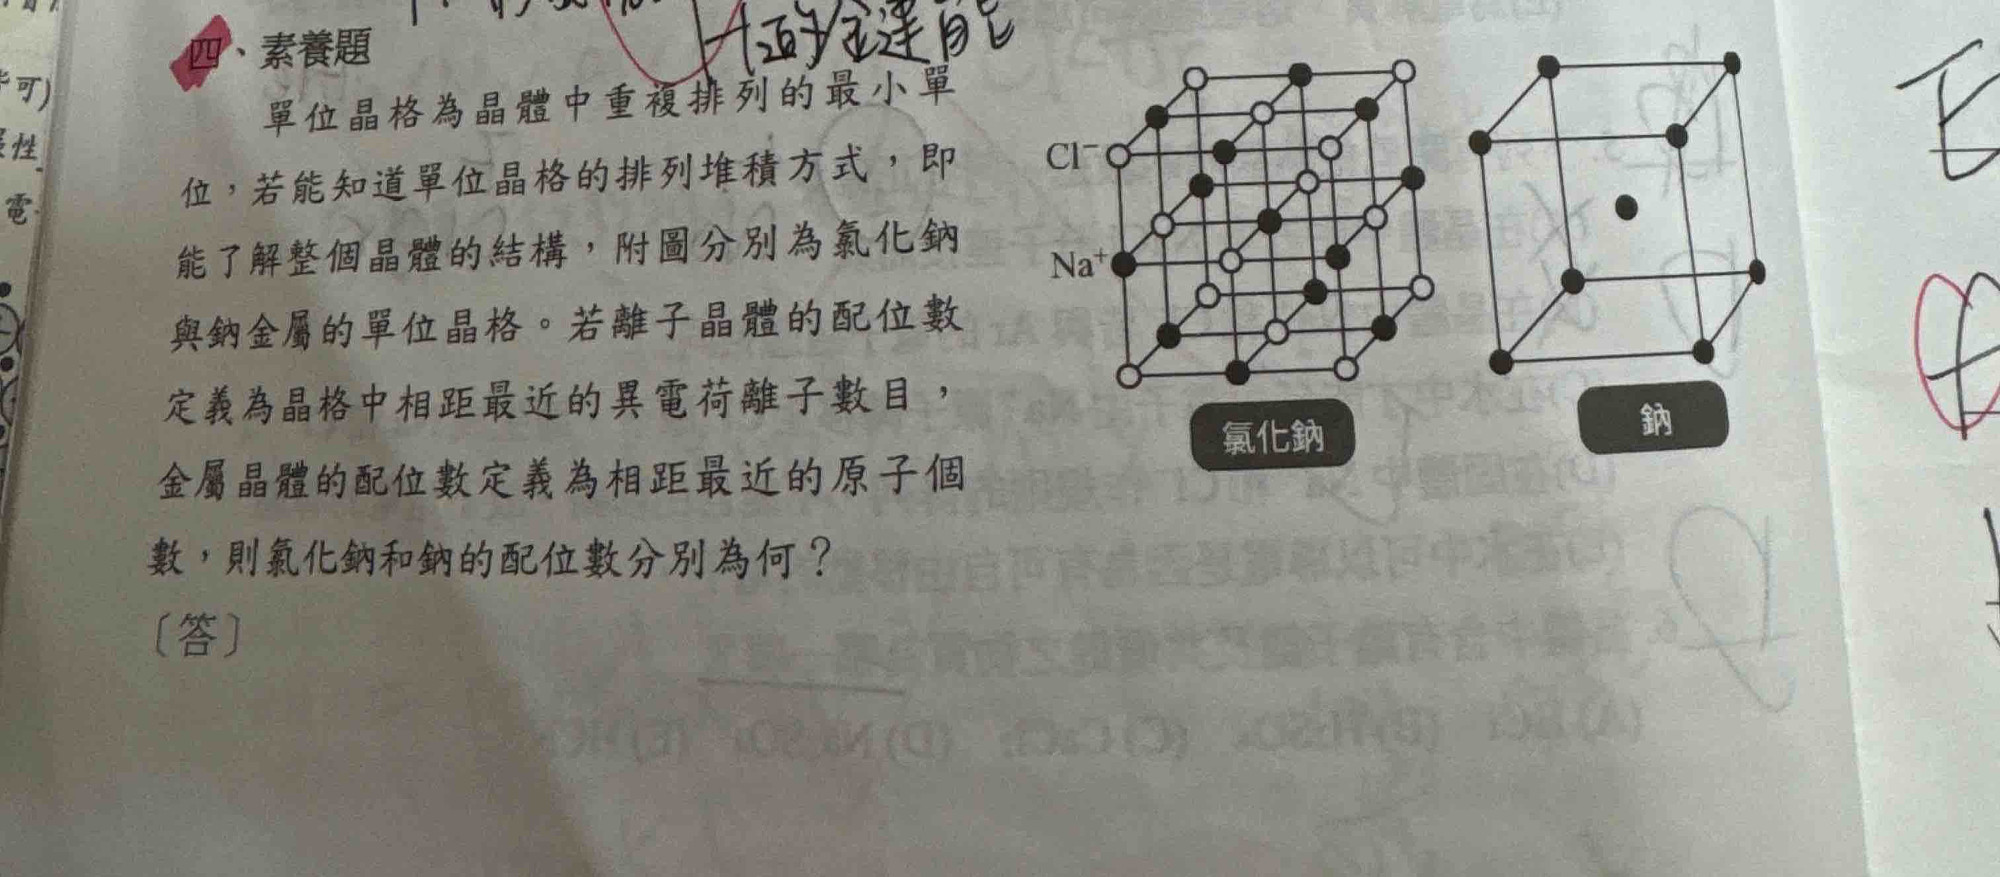 的金達能
四、素養題
單位晶格為晶體中重複排列的最小單
位，若能知道單位晶格的排列堆積方式，即
能了解整個晶體的結構，附圖分別為氯化鈉
與鈉金屬的單位晶格。若離子晶體的配位數
定義為晶格中相距最近的異電荷離子數目，
金屬晶體的配位數定義為相距最近的原子個
數，則氯化鈉和鈉的配位數分別為何？
〔答〕
Cl⁻
Na⁺
氯化鈉
鈉
可)
性
電